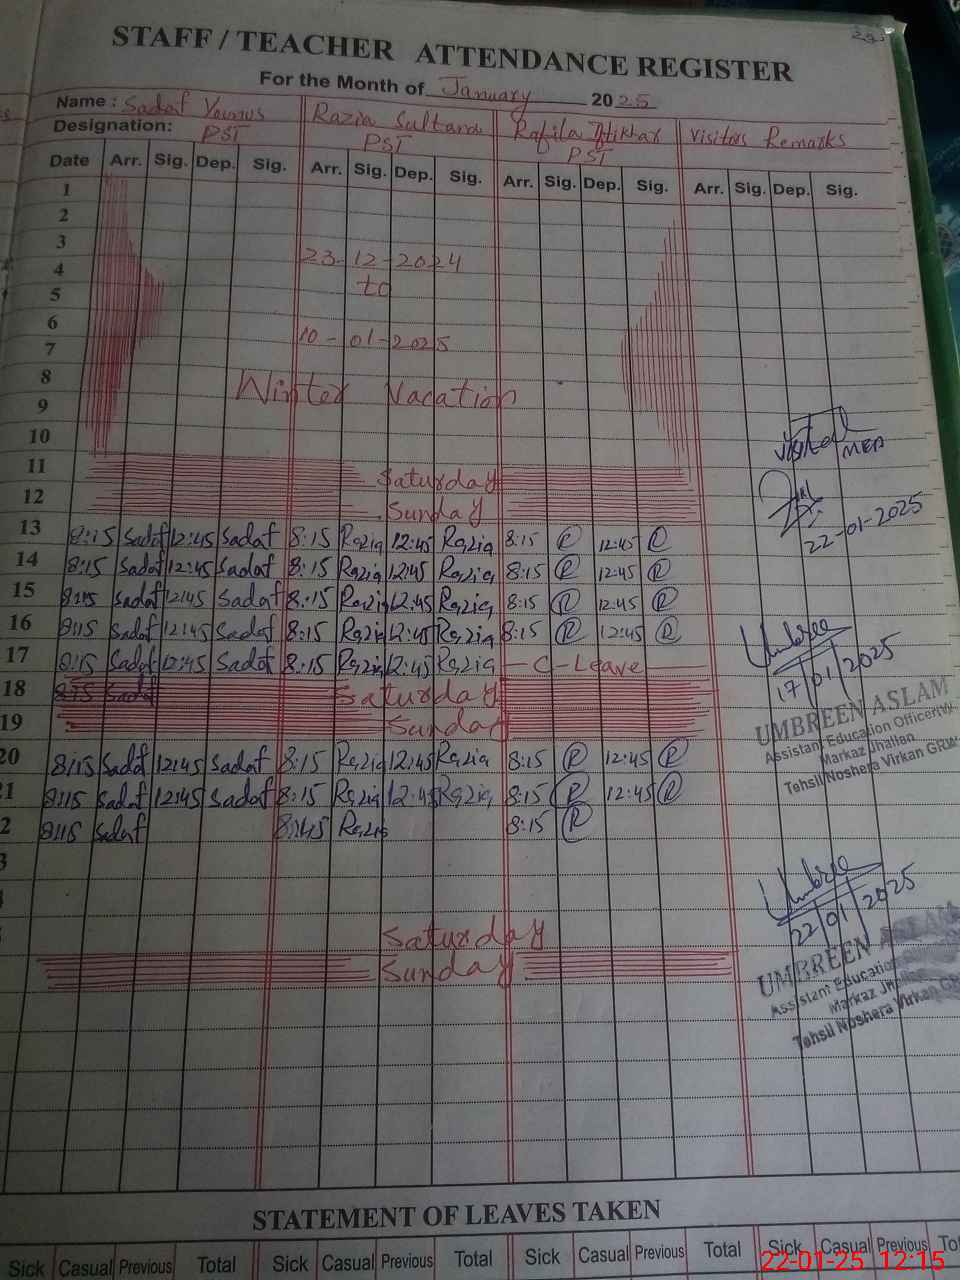 STAFF / TEACHER ATTENDANCE REGISTER
For the Month of January 2025
Name : Sadaf Younus Razia Sultana Rafila Iftikhar Visitors Remarks
Designation: PST PST PST
Date Arr. Sig. Dep. Sig. Arr. Sig. Dep. Sig. Arr. Sig. Dep. Sig. Arr. Sig. Dep. Sig.
1
2
3 23-12-2024
4 to
5
6
7 10-01-2025
8 Winter Vacation
9
10
11 Saturday
12 Sunday
visited MEA
22-01-2025
13 8:15 Sadaf 12:45 Sadaf 8:15 Razia 12:45 Razia 8:15 R 12:45 R
14 8:15 Sadaf 12:45 Sadaf 8:15 Razia 12:45 Razia 8:15 R 12:45 R
15 8:15 Sadaf 12:45 Sadaf 8:15 Razia 12:45 Razia 8:15 R 12:45 R
16 8:15 Sadaf 12:45 Sadaf 8:15 Razia 12:45 Razia 8:15 R 12:45 R
17 8:15 Sadaf 12:45 Sadaf 8:15 Razia 12:45 Razia - C - Leave
18 8:15 Sadaf Saturday
19 Sunday
Umbreen
17/01/2025
UMBREEN ASLAM
Assistant Education Officer(W)
Markaz Jhallan
Tehsil Noshera Virkan GRW
20 8:15 Sadaf 12:45 Sadaf 8:15 Razia 12:45 Razia 8:15 R 12:45 R
1 8:15 Sadaf 12:45 Sadaf 8:15 Razia 12:45 Razia 8:15 R 12:45 R
2 8:15 Sadaf 8:15 Razia 8:15 R
3
Saturday
Sunday
Umbreen
22/01/2025
UMBREEN ASLAM
Assistant Education
Markaz
Tehsil Noshera Virkan
STATEMENT OF LEAVES TAKEN
Sick Casual Previous Total Sick Casual Previous Total Sick Casual Previous Total Sick Casual Previous
22-01-25 12:15